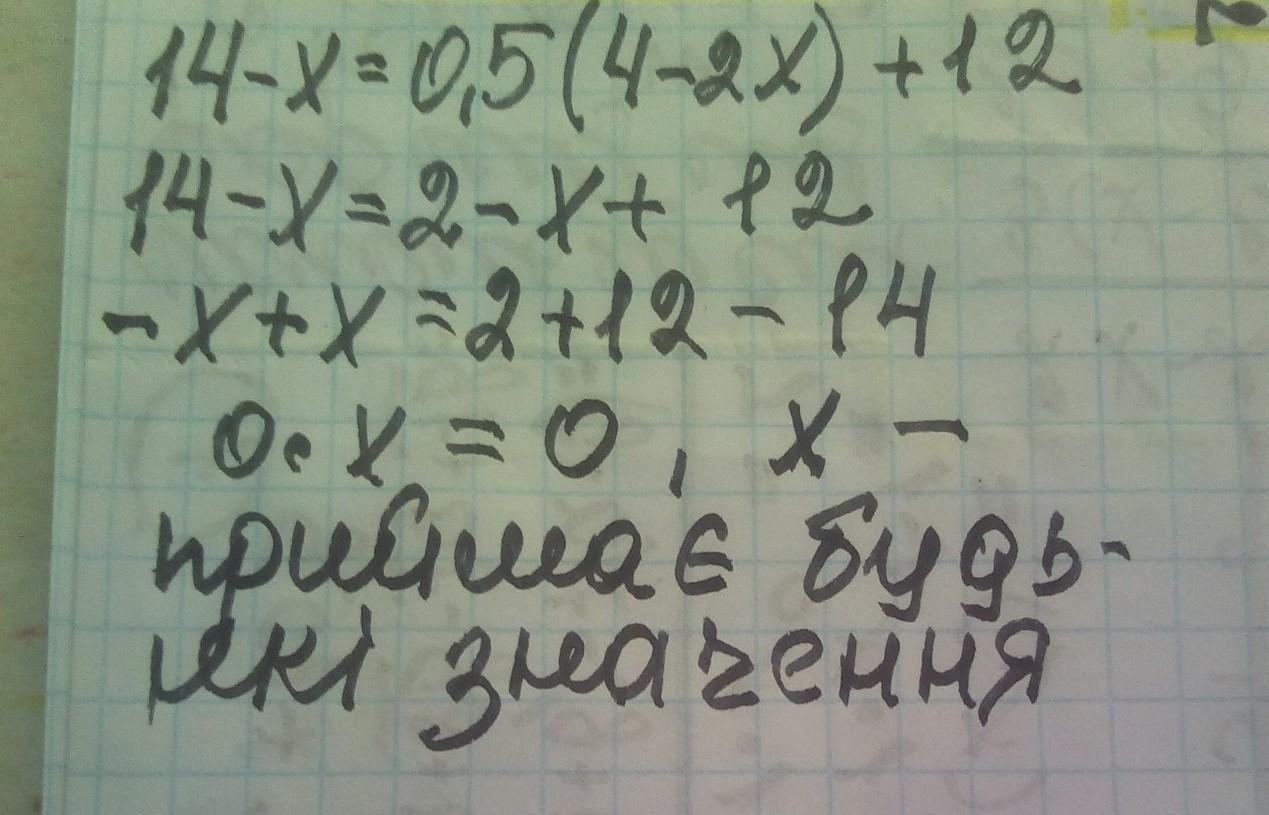 14-x=0,5(4-2x)+12
14-x=2-x+ 12
-x+x=2+12-14
0·x=0, x -
приймає будь-
які значення